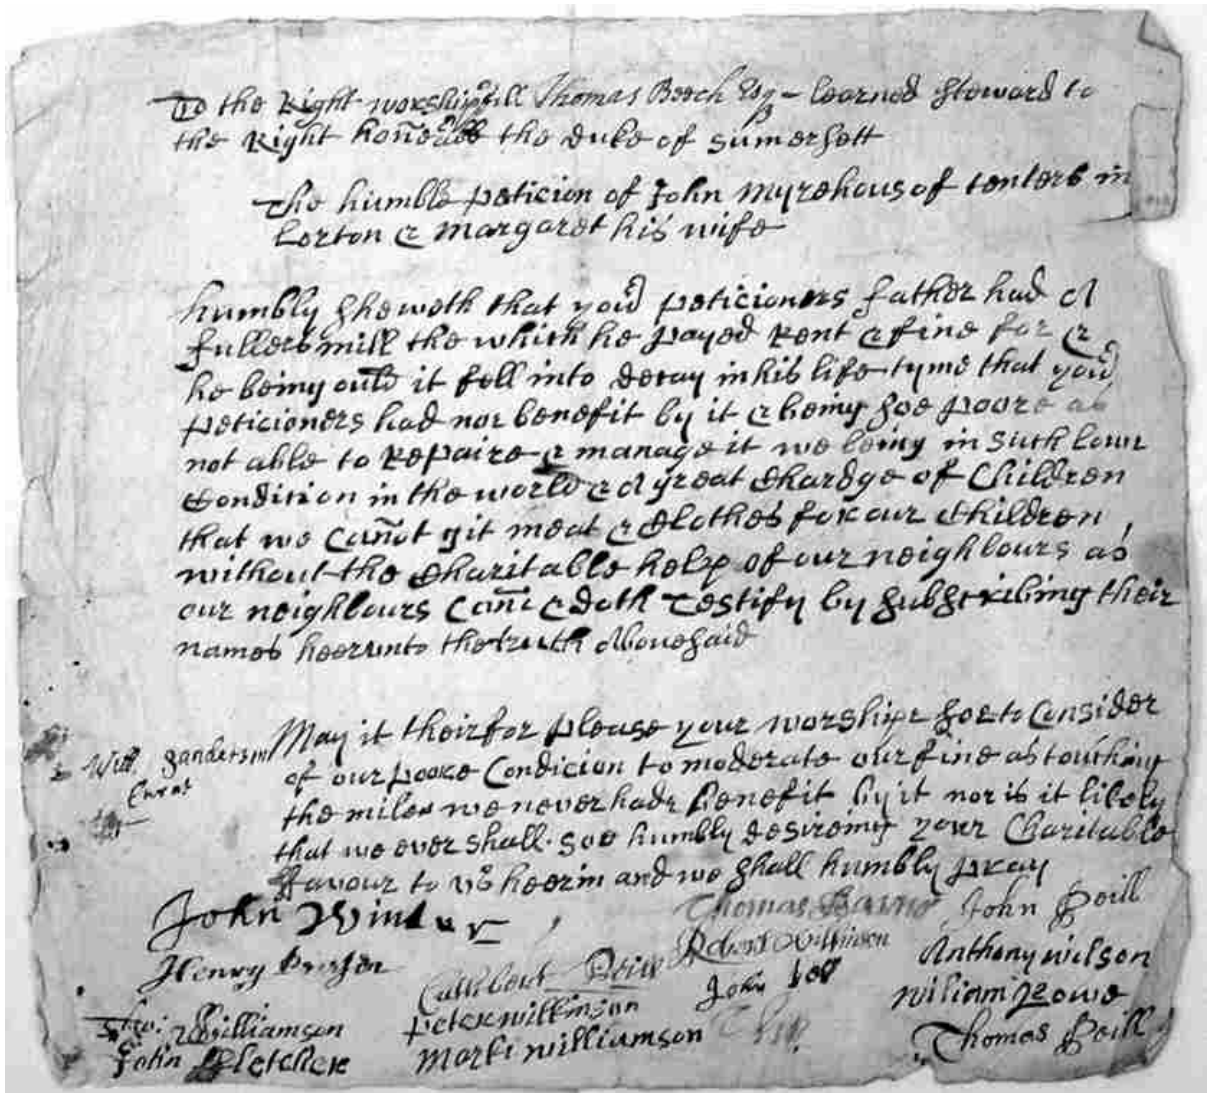 To the Right worshipfull Thomas Beech Esq – learned Steward to
the Right honerable the duke of Sumersett
The humble peticion of John Myrehous of tenters in
Lorton & Margaret his wife
humbly sheweth that your peticioners father had A
fullers mill the which he payed Rent & fine for &
he being ould it fell into decay in his life tyme that your
peticioners had nor benefit by it & being soe poore as
not able to Repaire & manage it we being in such low
Condition in the world & A great Chardge of Children
that we cannot git meat & Clothes for our Children
without the Charitable help of our neighbours as
our neighbours Cann & doth Testify by subscribing their
names heerunto the truth Abovesaid
May it theirfor please your worshipe soe to Consider
of our poore Condicion to moderate our fine as touching
the milne we never hade benefit by it nor is it likely
that we ever shall. soe humbly desireing your Charitable
favour to us heerin and we shall humbly pray
Will. Sanderson
Curat
John Winder
Thomas Barne
John Peill
Henry Pearson
Cuthbert Peill
Robert Wilkinson
Anthony wilson
Peter wilkinson
John Bell
Wiliam
Tho: Williamson
Mark williamson
Thomas Peill
John Fletcher